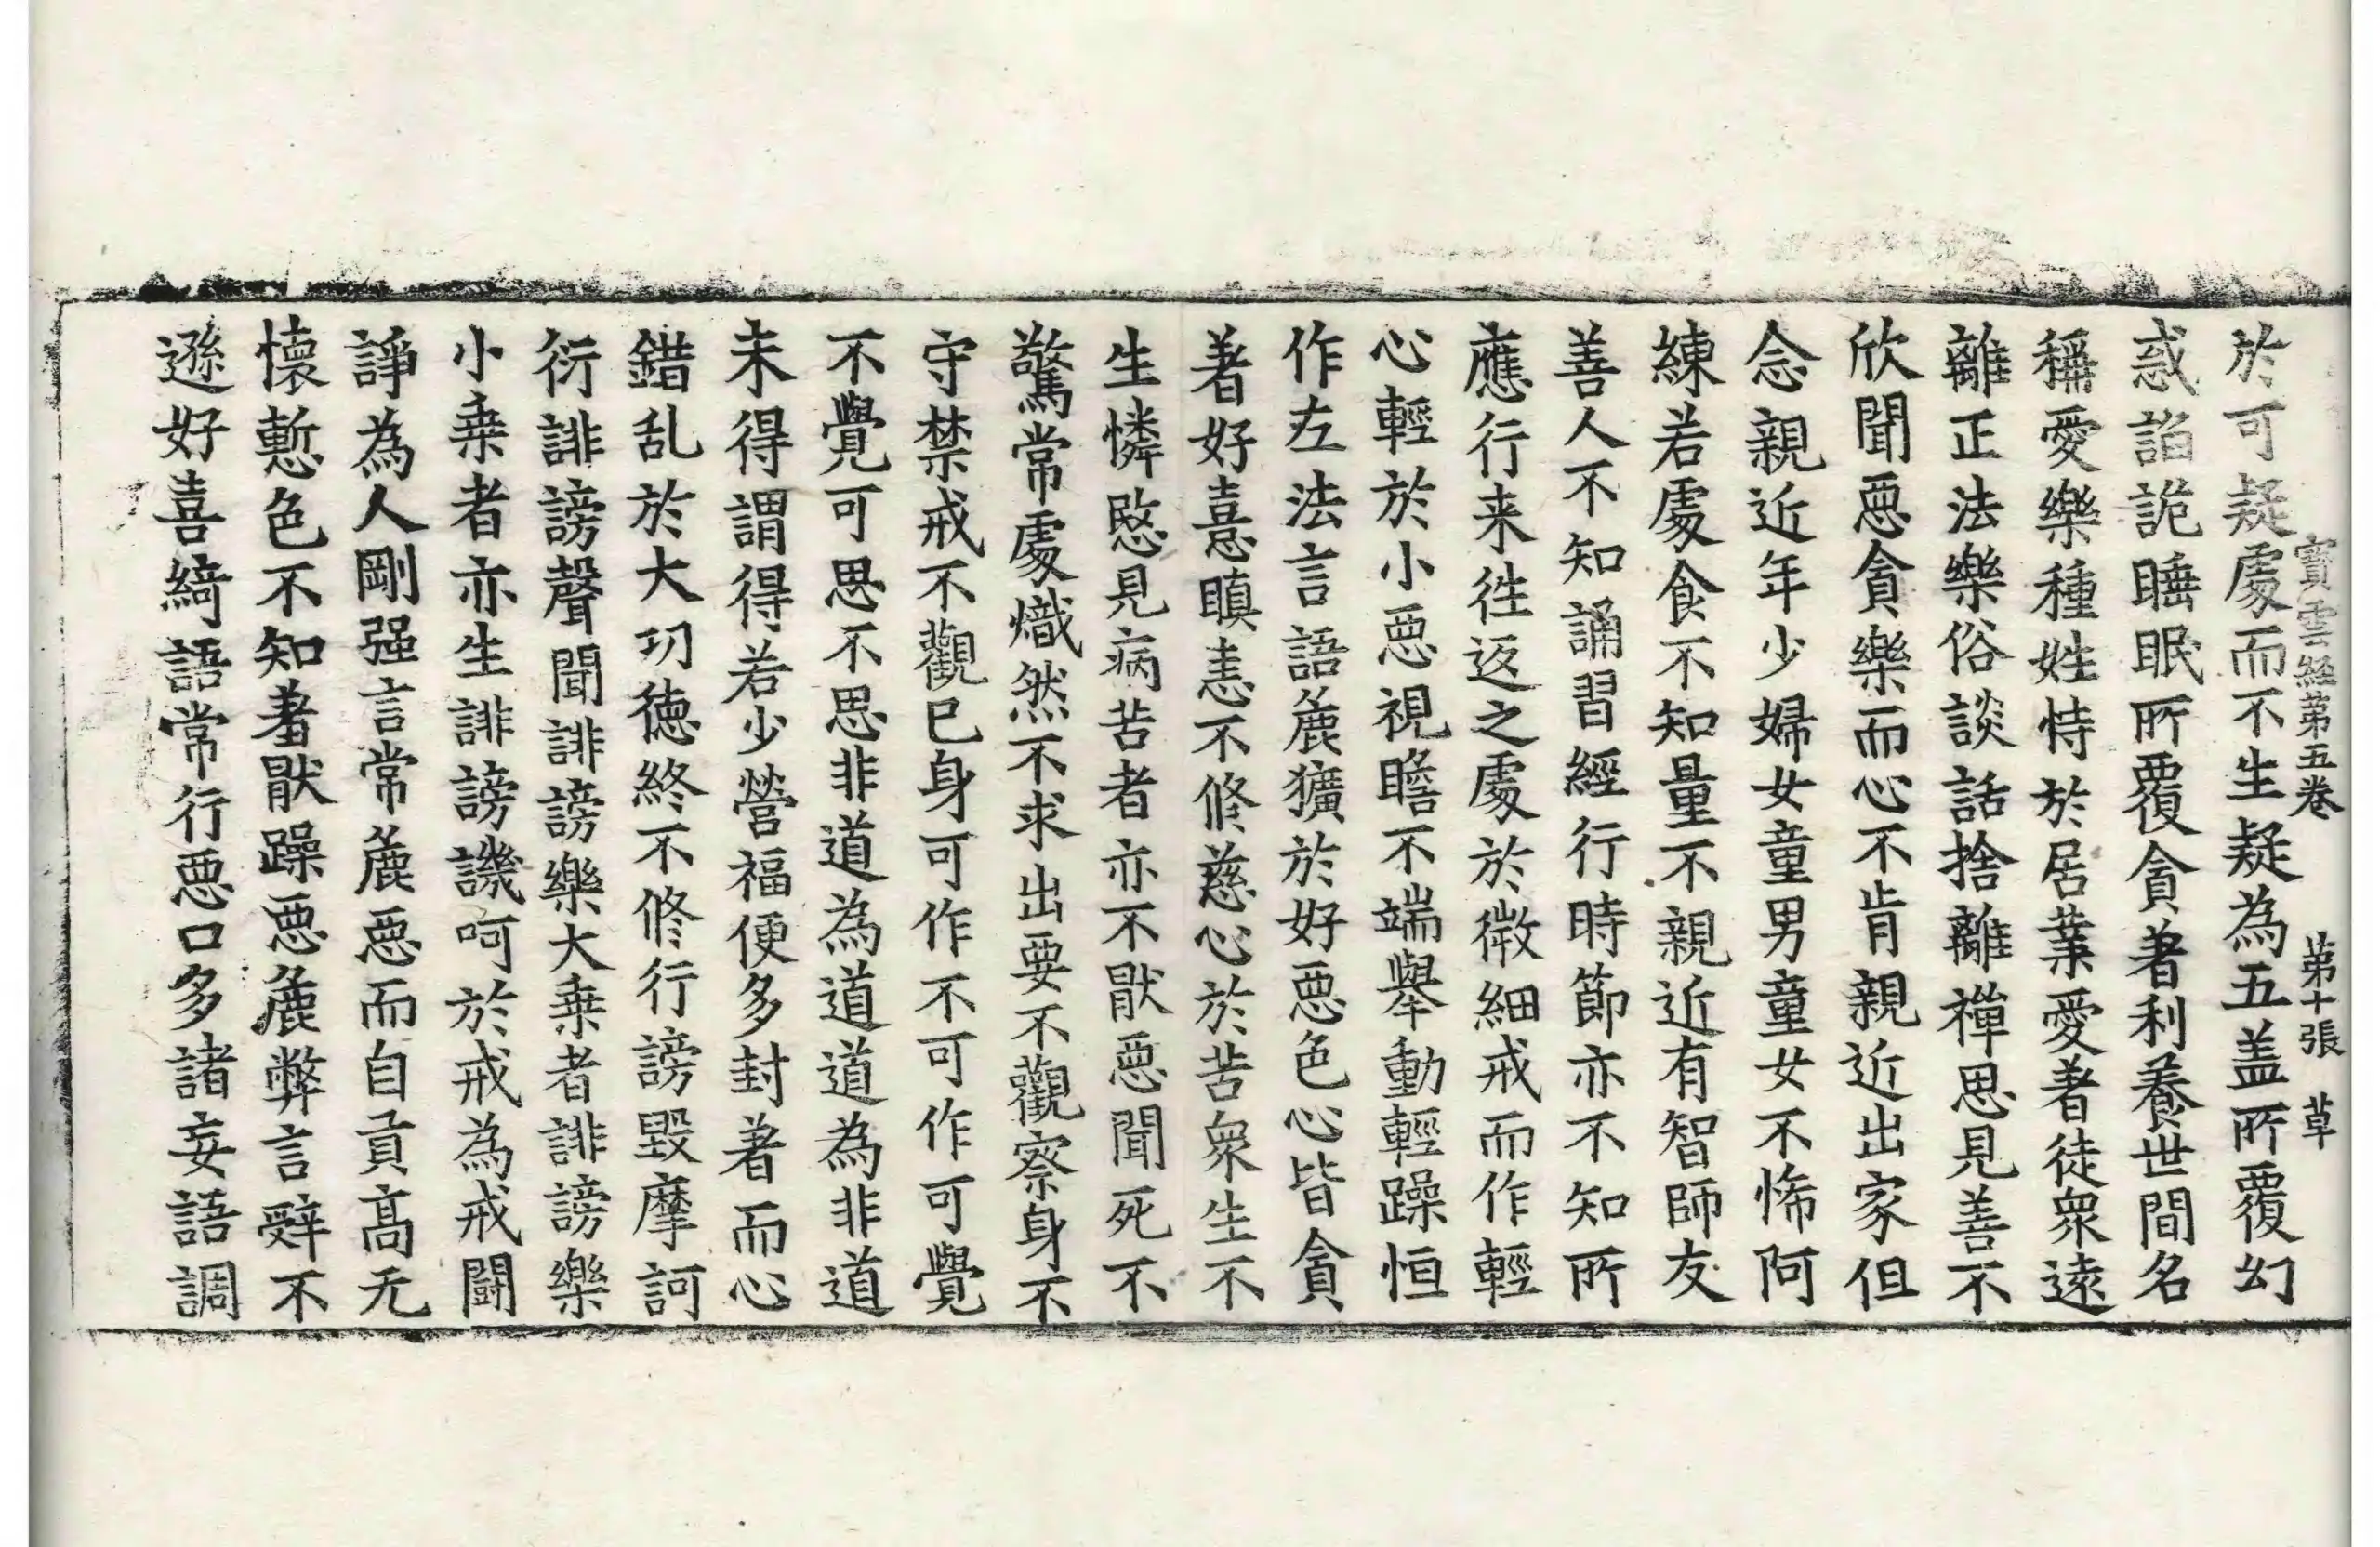 寶雲經第五卷　第十張　草
於可疑處而不生疑為五盖所覆幻
惑諂詭睡眠所覆貪著利養世間名
稱愛樂種姓恃於居業愛著徒衆遠
離正法樂俗談話捨離禪思見善不
欣聞惡貪樂而心不肯親近出家但
念親近年少婦女童男童女不悕阿
練若處食不知量不親近有智師友
善人不知誦習經行時節亦不知所
應行来往返之處於微細戒而作輕
心輕於小惡視瞻不端舉動輕躁恒
作左法言語麁獷於好惡色心皆貪
著好憙瞋恚不修慈心於苦衆生不
生憐愍見病苦者亦不猒惡聞死不
驚常處熾然不求出要不觀察身不
守禁戒不觀已身可作不可作可覺
不覺可思不思非道為道道為非道
未得謂得若少營福便多封著而心
錯乱於大㓛德終不修行謗毀摩訶
衍誹謗聲聞誹謗樂大乗者誹謗樂
小乗者亦生誹謗譏呵於戒為戒鬪
諍為人剛强言常麁惡而自貢高无
懷慙色不知羞猒躁惡麁弊言辝不
遜好喜綺語常行惡口多諸妄語調